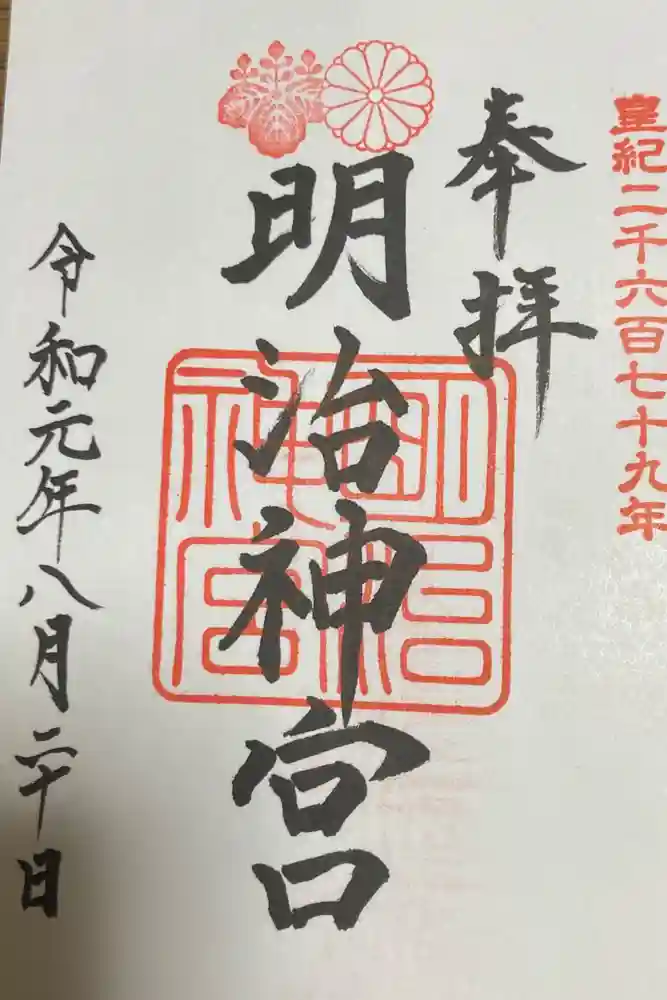 皇紀二千六百七十九年
奉拝
明治神宮
明治神宮
令和元年八月二十日